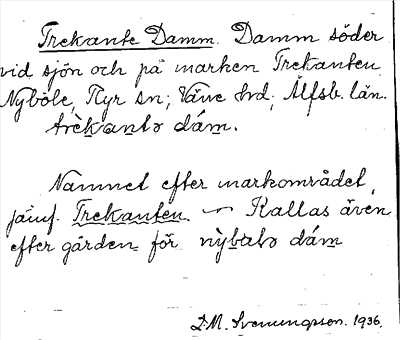 Trekante Damm. Damm söder
vid sjön och på marken Trekanten
Nyböle, Ryr sn; Väne hd; Älfsb. län.
trèkantə dám.
Namnet efter markområdet,
jämf. Trekanten. — Kallas även
efter gården för nỳbalə dám
D.M. Svenungsson. 1936.